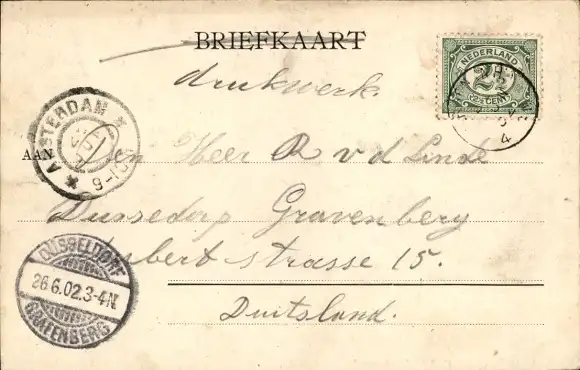 BRIEFKAART
drukwerk.
NEDERLAND
2½
CENT
AMSTERDAM
AAN den Heer R v d Linde
Dussedorp Gravenberg
strasse 15.
Duitsland.
DÜSSELDORF
26.6.02.3-4N
GRAFENBERG